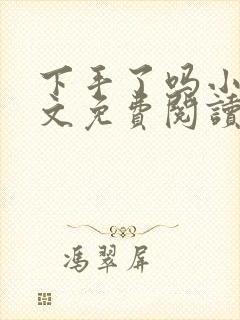 下手了吗小
文免费阅读
冯翠屏